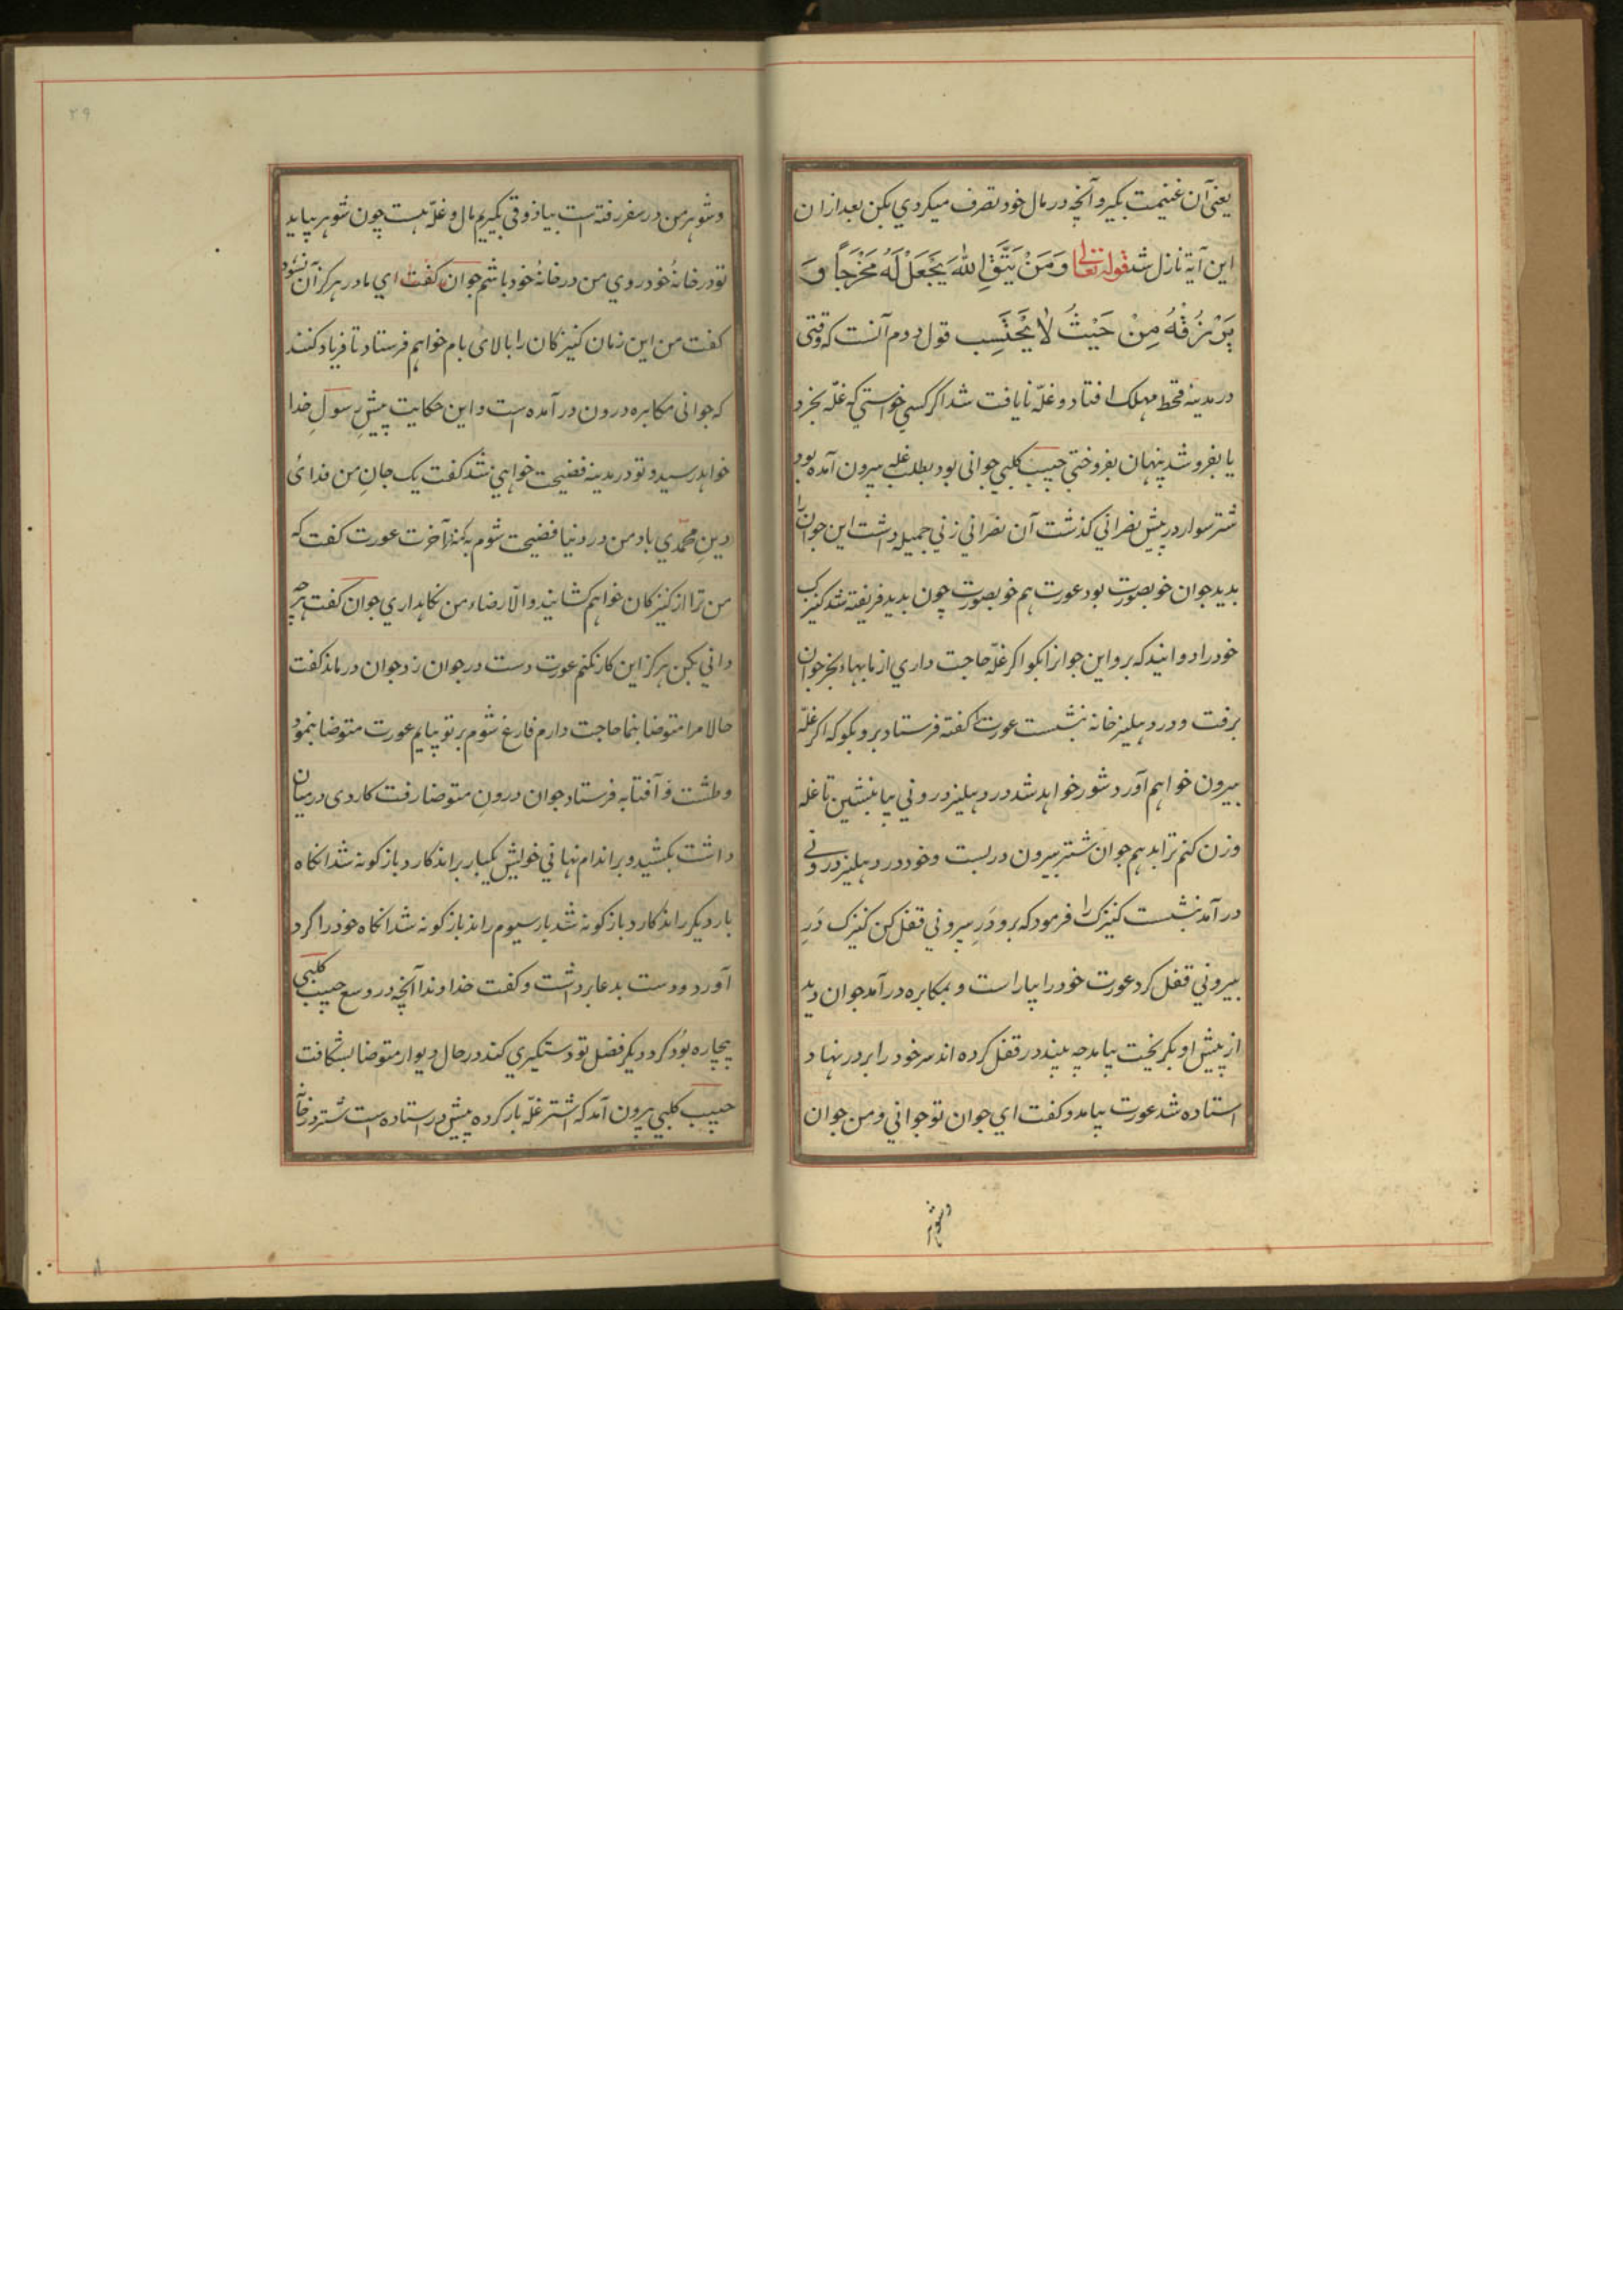 یعنی آن غنیمت بگیر و آنچه در مال خود تصرف میکردي بکن بعد ازان
این آیة نازل شد قوله تعالی وَمَنْ یَتَّقِ اللهَ یَجْعَلْ لَهُ مَخْرَجاً وَ
یَرْزُقْهُ مِنْ حَیْثُ لٰا یَحْتَسِب قول دوم آنست که وقتی
در مدینهٔ قحط مهلک افتاد و غلّه نایافت شد اگر کسي خواستي که غلّه بخرد
یا بفروشد پنهان بفروختي حبیب کلبي جوانی بود بطلب غله بیرون آمده بود
شتر سوار در پیش نصراني گذشت آن نصراني زني جمیله داشت این جوان را
بدید جوان خوبصورت بود عورت هم خوبصورت چون بدید فریفته شد کنیزک
خود را دوانید که برو این جوانرا بگو اگر غلّه حاجت داري از ما بهاء بخر جوان
برفت و در دهلیز خانه بنشست عورت گفته فرستاد برو بگو که اگر غلّه
بیرون خواهم آورد شور خواهد شد در دهلیز دروني بیا بنشین تا غله
وزن کنم ترا بدهم جوان شتر بیرون در بست و خود در دهلیز دروني
در آمد بنشست کنیزک را فرمود که برو دَرِ بیروني قفل کن کنیزک دَرِ
بیروني قفل کرد عورت خود را بیاراست و بمکابره در آمد جوان دید
از پیش او بگریخت بیامد چه بیند در قفل کرده اند سر خود را بر در نهاد
استاده شد عورت بیامد و گفت اي جوان تو جواني و من جوان
وشوهر
۲۹
و شوهر من در سفر رفته است بیا ذوقی بگیریم مال و غلّه هست چون شوهر بیاید
تو در خانهٔ خود روي من در خانهٔ خود باشم جوان گفت اي مادر هرگز آن نشود
گفت من این زمان کنیزکان را بالاى بام خواهم فرستاد تا فریاد کنند
که جوانی مکابره درون در آمده است و این حکایت پیشِ رسولِ خدا
خواهد رسید و تو در مدینه فضیحت خواهي شد گفت یک جانِ من فداىٔ
دینِ محمّدي باد من در دنیا فضیحت شوم به که آخرت عورت گفت که
من ترا از کنیزکان خواهم کشانید والّا رضاء من نگاهداري جوان گفت هرچه
داني بکن هرگز این کار نکنم عورت دست در جوان زد جوان درماند گفت
حالا مرا متوضا بنما حاجت دارم فارغ شوم بر تو بیایم عورت متوضا بنمود
و طشت و آفتابه فرستاد جوان درونِ متوضا رفت کاردی در میان
داشت بکشید و بر اندام نهاني خویش یکبار براند کارد بازگونه شد انگاه
بار دیگر راند کارد بازگونه شد بار سیوم راند بازگونه شد انگاه خود را گرد
آورد و دست بدعا برداشت و گفت خداوندا آنچه در وسع حبیب کلبي
بیچاره بود کرد دیگر فضل تو دستگیري کند در حال دیوار متوضا بشکافت
حبیب کلبي بیرون آمد که اشتر غلّه بار کرده پیشِ در استاده است شتر در خانه